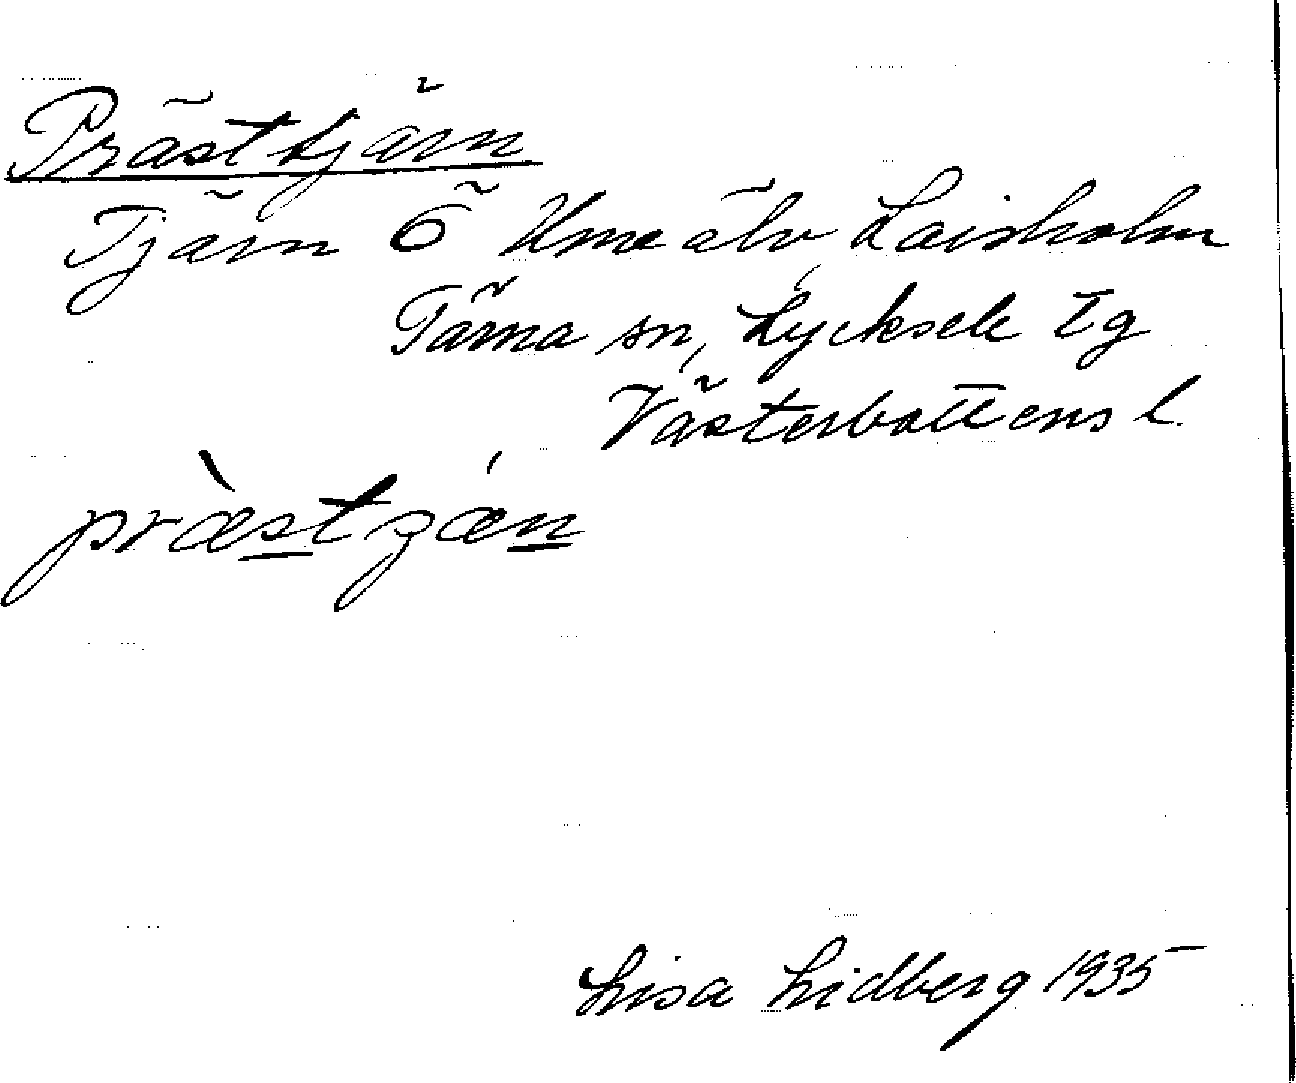 Prästtjärn
Tjärn Ö Umeälv, Laisholm
Tärna sn, Lycksele tg
Västerbottens l.
præ̀stʒǽn
Lisa Lidberg 1935